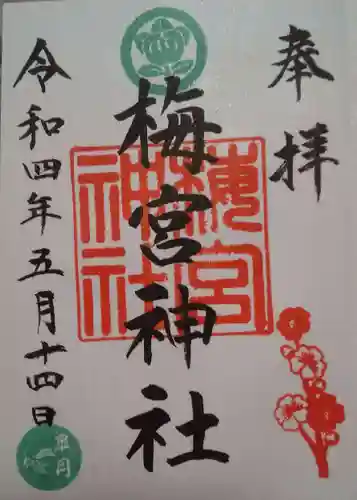 奉拝
梅宮神社
梅宮神社
令和四年五月十四日
皐月